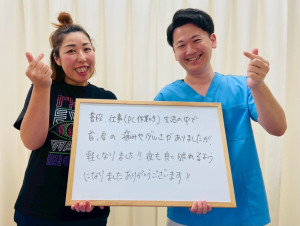 普段、仕事(PC作業)や生活の中で
首、肩の痛みやダルさがありましたが、
軽くなりました!!夜も良く眠れるよう
になりましたありがとうございます!!